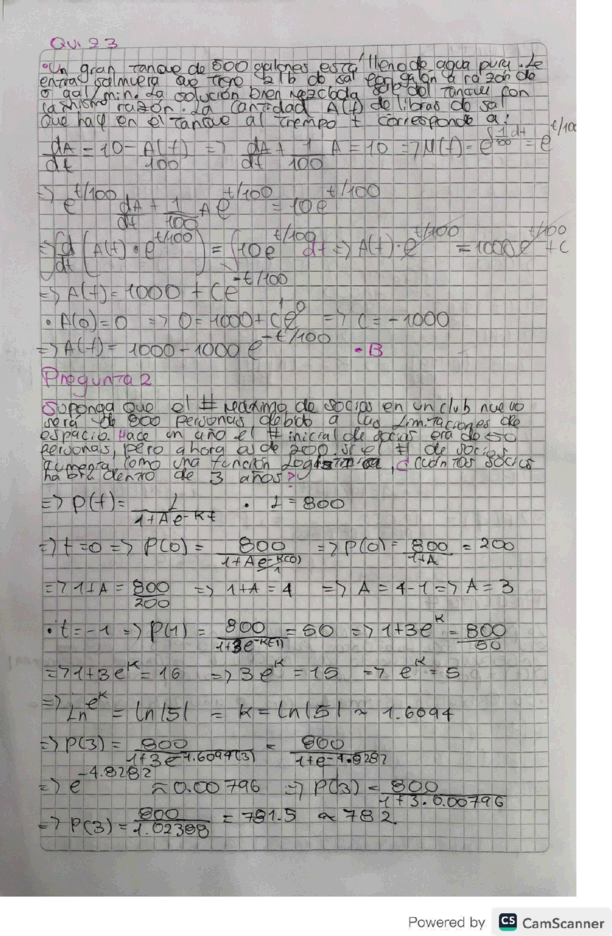 Qui 23
•Un gran tanque de 500 galones está lleno de agua pura. Le
entra salmuera que tiene 2 lb de sal por galón a razón de
5 gal/min. La solución bien mezclada sale del tanque con
la misma razón. La cantidad A(t) de libras de sal
que hay en el tanque al tiempo t corresponde a:
dA/dt = 10 - A(t)/100 => dA/dt + 1/100 A = 10 => M(t) = e^∫1/100 dt = e^t/100
=> e^t/100 dA/dt + 1/100 A e^t/100 = 10e^t/100
=> ∫d/dt (A(t) • e^t/100) = ∫10e^t/100 dt => A(t) • e^t/100 = 1000e^t/100 + C
=> A(t) = 1000 + Ce^-t/100
• A(0) = 0 => 0 = 1000 + Ce^0 1 => C = -1000
=> A(t) = 1000 - 1000 e^-t/100 • B
Pregunta 2
Suponga que el # máximo de socios en un club nuevo
será de 800 personas debido a las limitaciones de
espacio. Hace un año el # inicial de socios era de 50
personas, pero ahora es de 200. si el # de socios
aumenta como una función logística, ¿cuántos socios
habrá dentro de 3 años?
=> P(t) = L/1+Ae^-Kt • L = 800
=> t=0 => P(0) = 800/1+Ae^-K(0) 1 => P(0) = 800/1+A = 200
=> 1+A = 800/200 => 1+A = 4 => A = 4-1 => A = 3
• t = -1 => P(1) = 800/1+3e^-K(-1) = 50 => 1+3e^K = 800/50
=> 1+3e^K = 16 => 3e^K = 15 => e^K = 5
=> Ln e^K = ln|5| = K = ln|5| ≈ 1.6094
=> P(3) = 800/1+3e^-1.6094(3) = 800/1+e^-4.8282
=> e^-4.8282 ≈ 0.00796 => P(3) = 800/1+3•0.00796
=> P(3) = 800/1.02388 = 781.5 ≈ 782
Powered by CS CamScanner